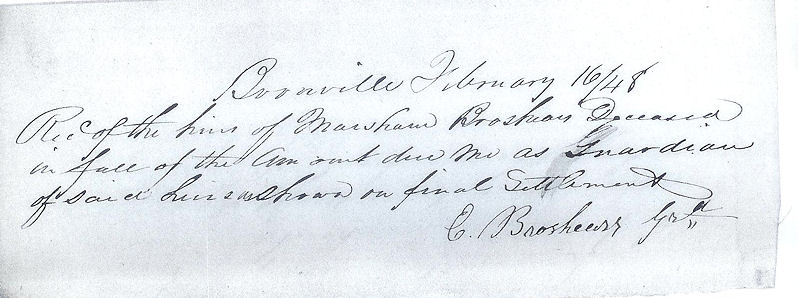 Boonville February 16/48
Recd of the hiers of Marsham Broshears Deceased
in full of the Amount due me as Guardian
of said heirs as shown on final Settlement
E. Broshears Grdn